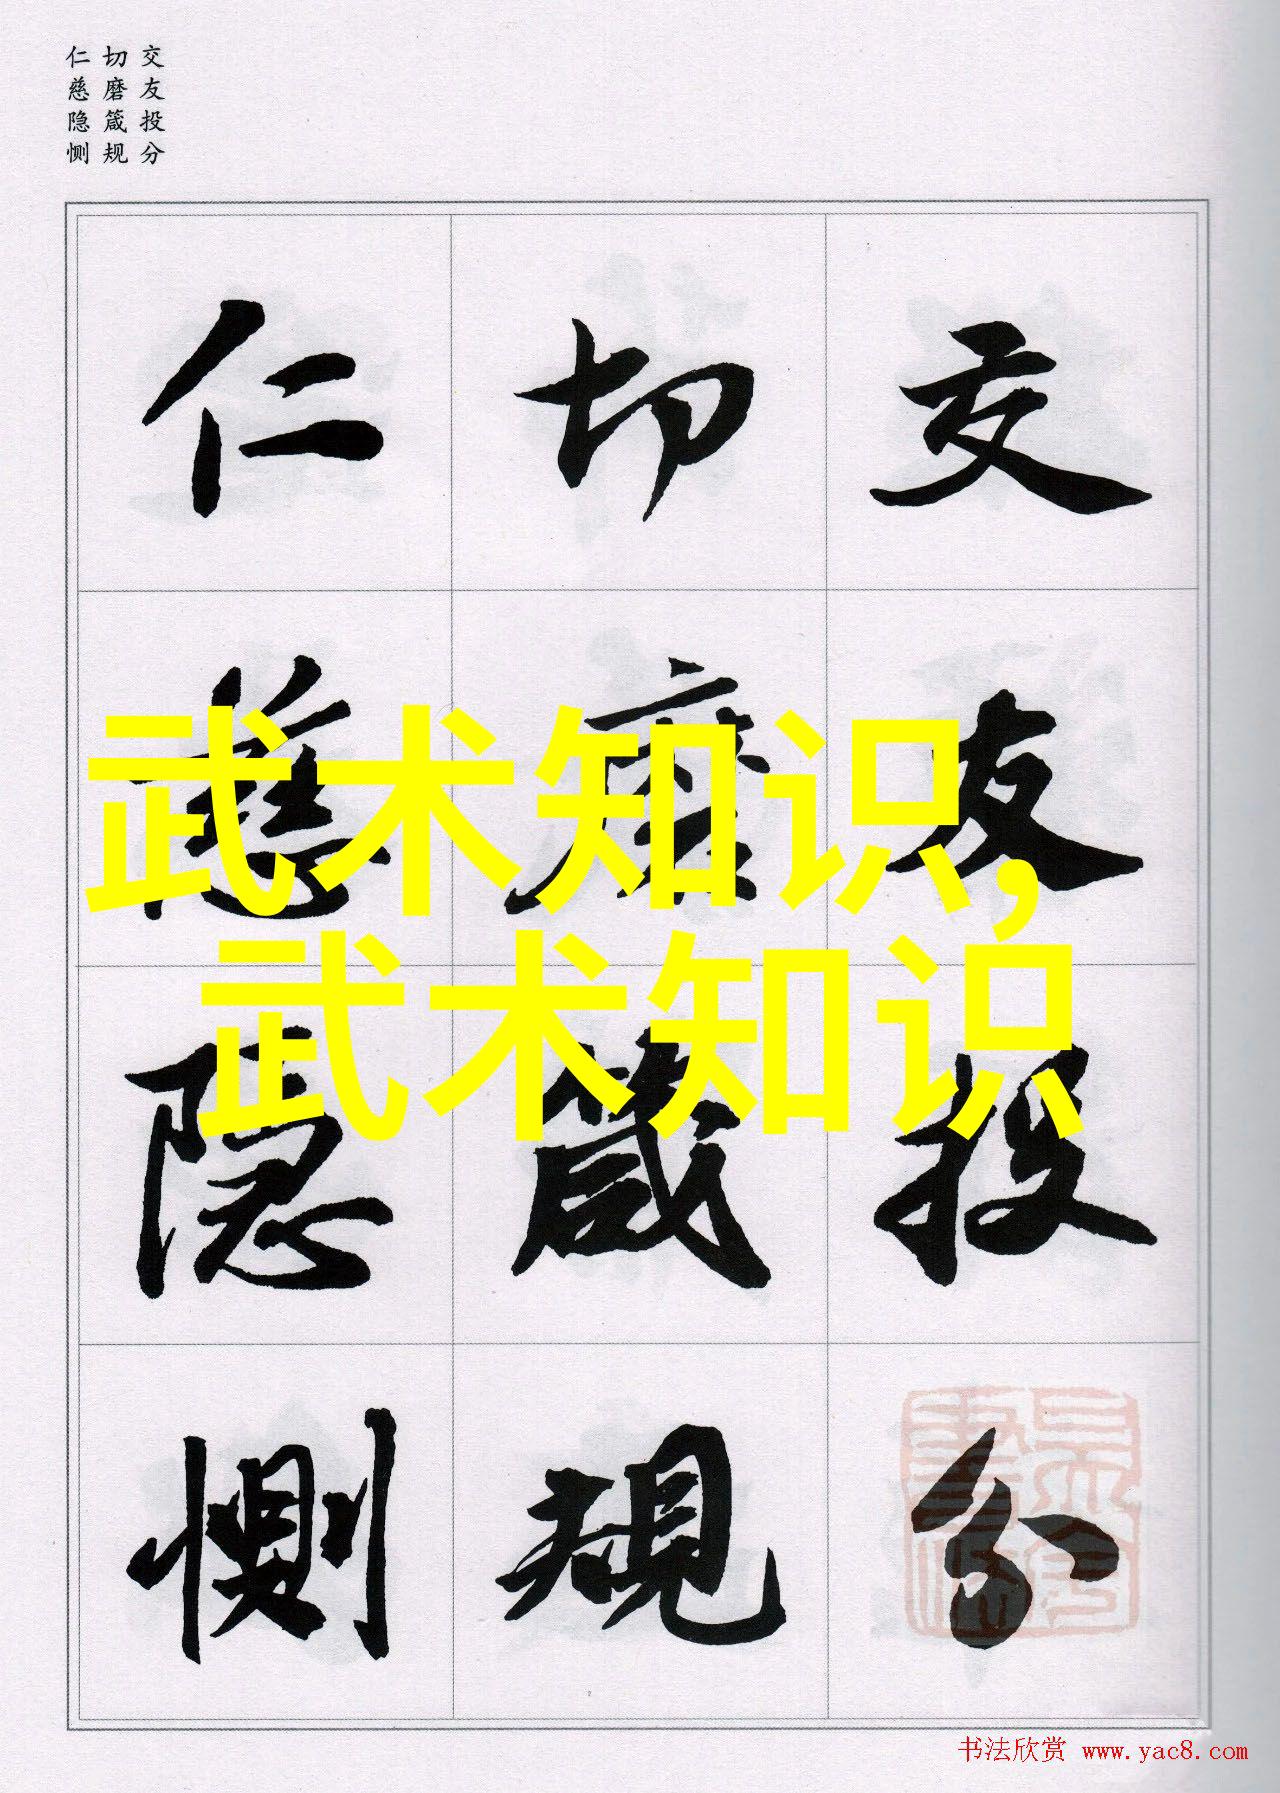 交友投分
切磨箴规
仁慈隐恻
交友投分
切磨箴規
仁慈隐惻
武术知识,
武术知识
书法欣赏 www.yac8.com